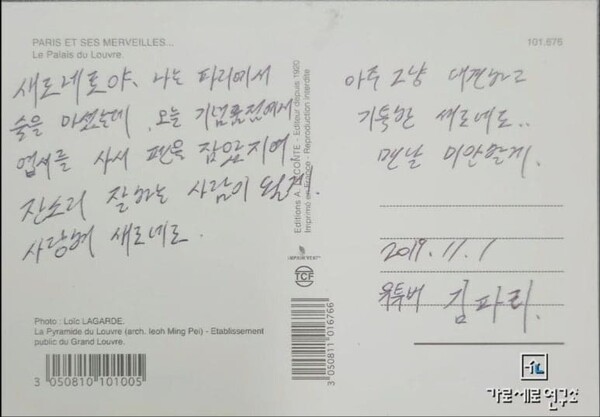 PARIS ET SES MERVEILLES...
Le Palais du Louvre.
101.676
새로네로야, 나는 파리에서
술을 마셨는데, 오늘 기념품점에서
엽서를 사서 펜을 잡았지에
잔소리 잘하는 사람이 될게.
사랑해 새로네로.
Photo : Loïc LAGARDE.
La Pyramide du Louvre (arch. Ieoh Ming Pei) - Etablissement
public du Grand Louvre.
3 050810 101005
Editions A. LECONTE - Editeur depuis 1920
Imprimé en France - Reproduction interdite
IMPRIM'VERT
TCF
3 050811 016766
아주 그냥 대견하고
기특한 새로네로..
맨날 미안할게.
2019. 11. 1
유투버 김파리.
가로세로연구소